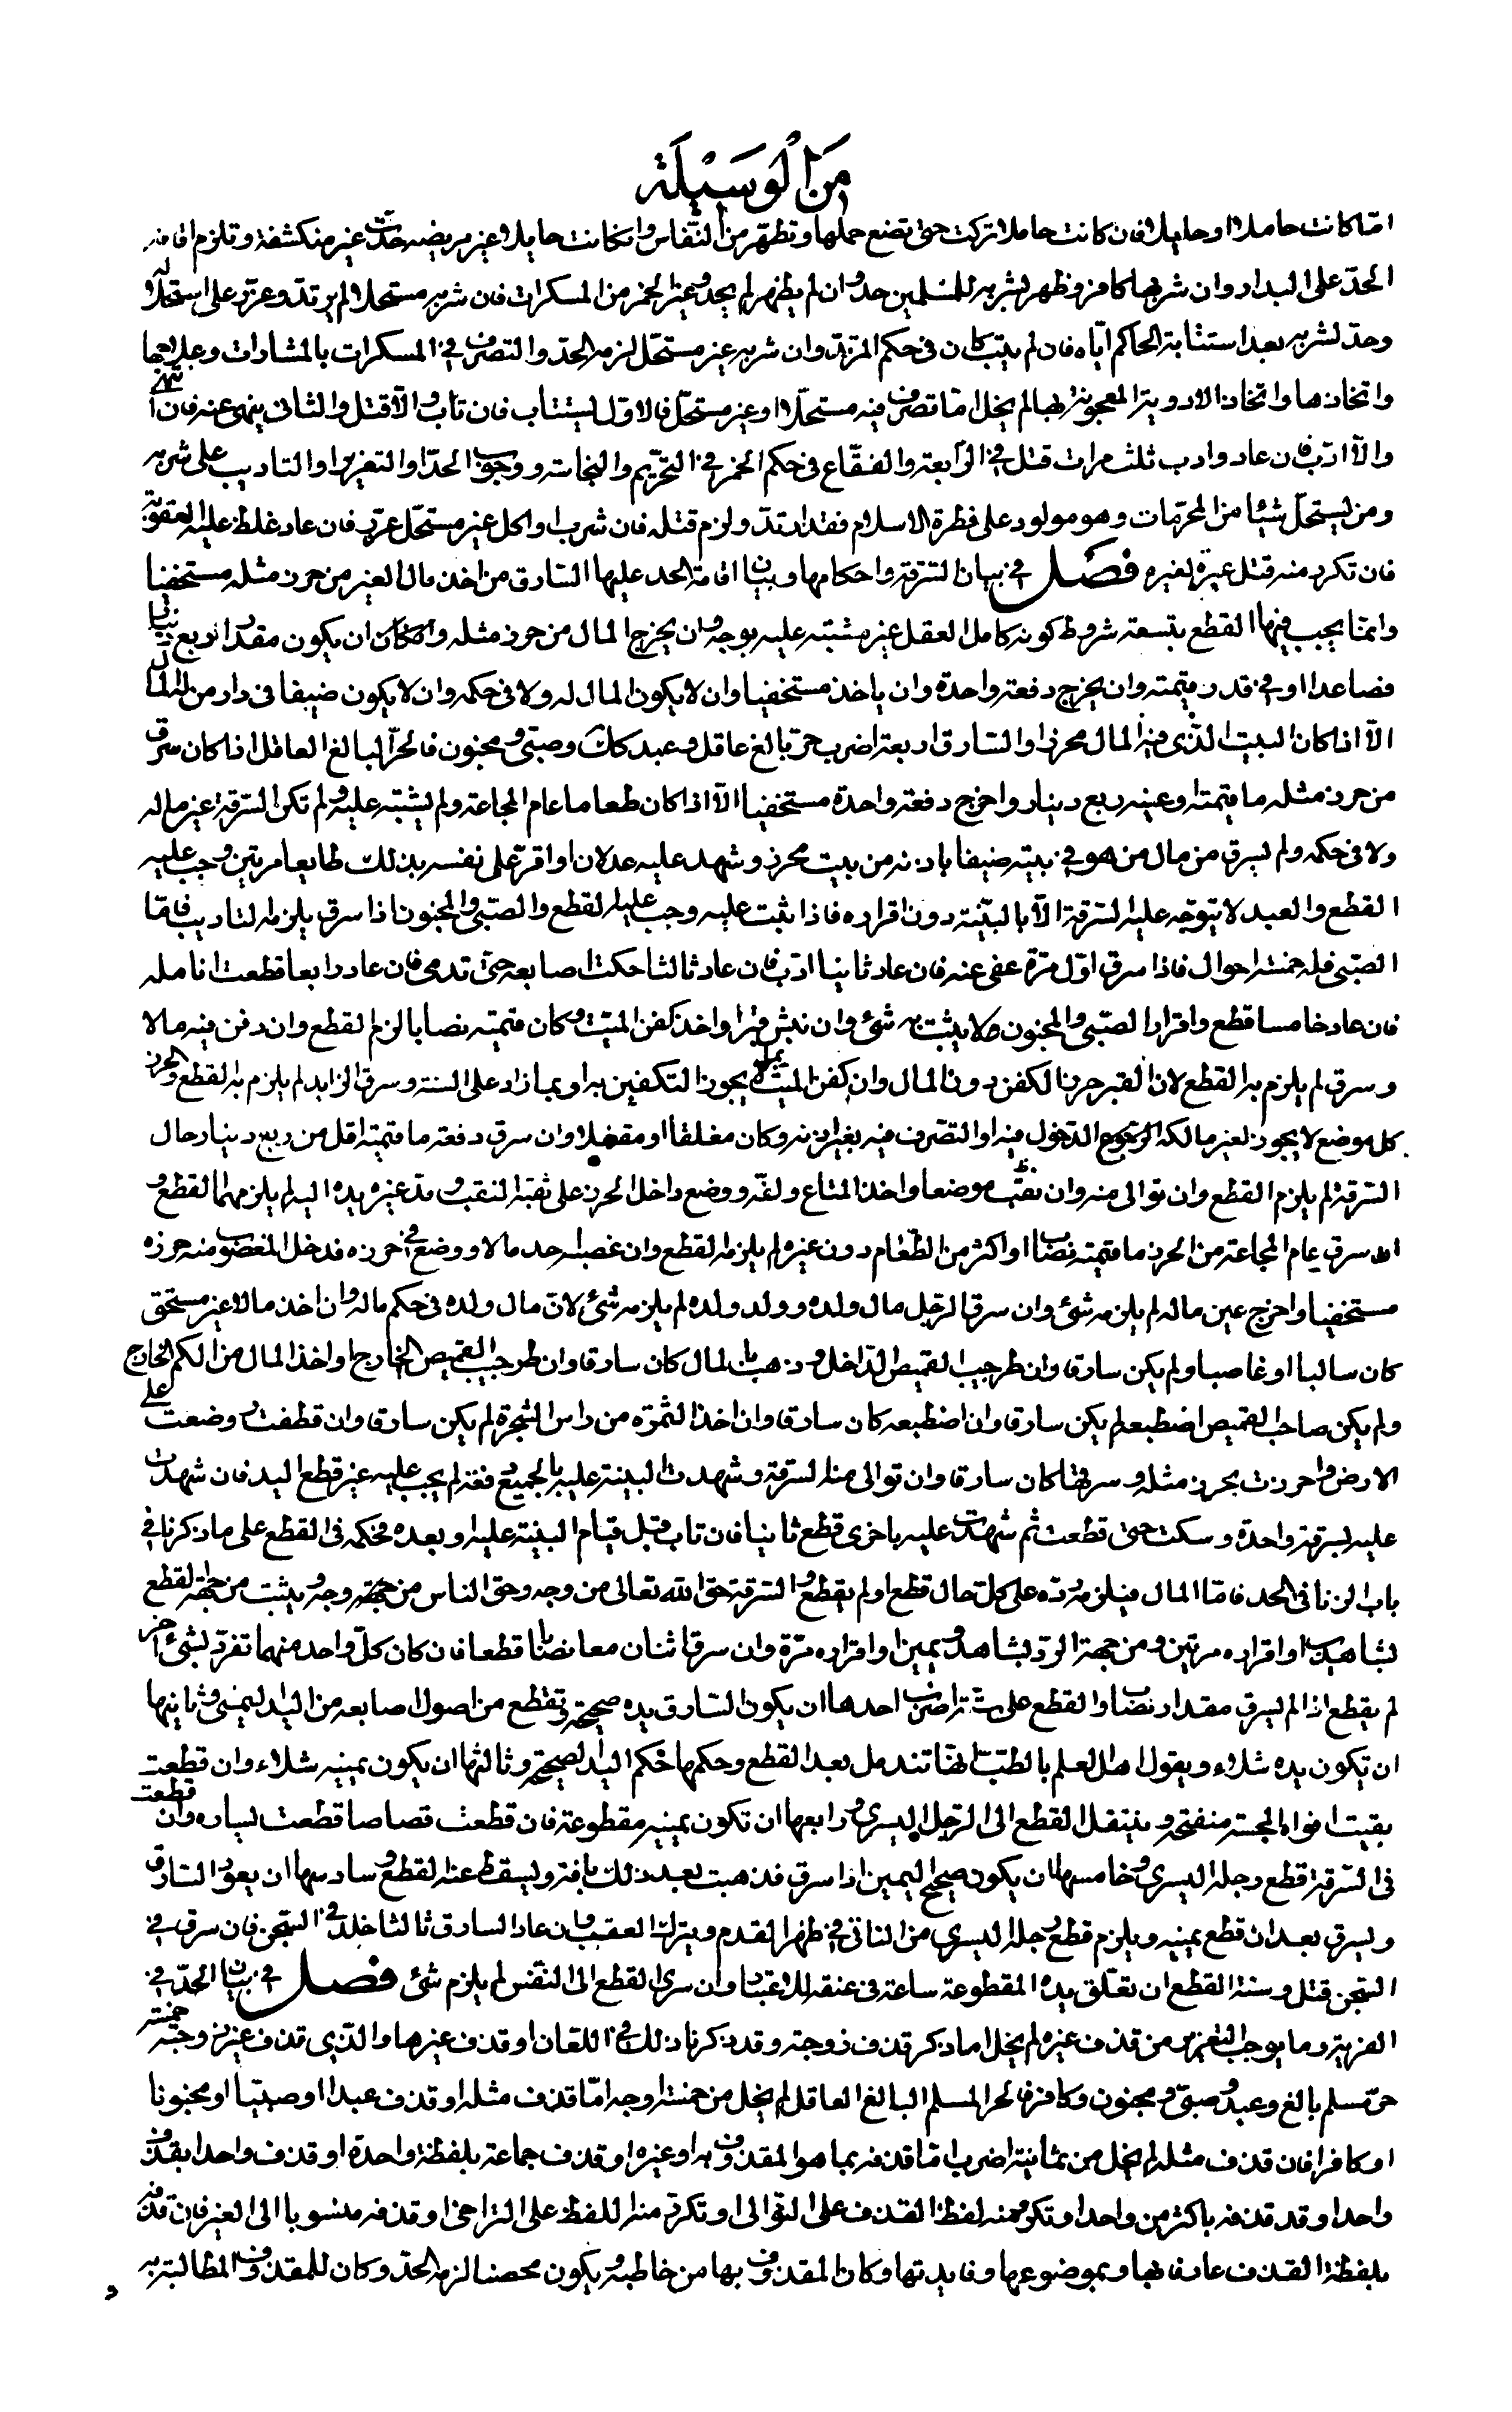 من الوسيلة
امّا كانت حاملا او حايلا فان كانت حاملا تركت حتى تضع حملها وتطهر من النّفاس وان كانت حايلا غير مريضه حدّت غير منكشفة وتلزم اقامه
الحدّ على البدار وان شربها كافر وظهر لشربه للمسلمين حدّ وان لم يظهر لم يحد وغير الخمر من المسكرات فان شربه مستحلا لم يرتدّ وعزّر على استحلاله
وحدّ لشربه بعد استتابة الحاكم ايّاه فان لم يتب كان فى حكم المرتدّ وان شربه غير مستحلّ لزمه الحدّ والتصرف فى المسكرات بالمشارات وعلاجها
واتخاذها واتخاذ الادوية المعجونة بها لم يخل امّا تصرف فيه مستحلّا او غير مستحلّ فالاوّل يستتاب فان تاب والّا قتل والثانى ينهى عنه فان انتهى
والّا ادّب فان عاد وادب ثلث مرات قتل فى الرّابعة والفقّاع فى حكم الخمر فى التحريم والنجاسته ووجوب الحدّ او التعزير او التاديب على شربه
ومن يستحلّ شيئا من المحرّمات وهو مولود على فطرة الاسلام فقد ارتدّ ولزم قتله فان شرب او اكل غير مستحلّ عزّر فان عاد غلظ عليه العقوبة
فان تكرر منه قتل عبرة لغيره فصل فى بيان السّرقة واحكامها وبيان اقامة الحد عليها السّارق من اخذ مال الغير من حرز مثله مستخفيا
وانّما يجب فيها القطع بتسعة شروط كونه كامل العقل غير مشتبه عليه بوجه وان يخرج المال من حرز مثله وان يكون مقدار ربع دينار
فصاعدا او فى قدر قيمته وان يخرج دفعة واحدة وان ياخذ مستخفيا وان لا يكون المال له ولا فى حكمه وان لا يكون ضيفا فى دار من له المال
الّا اذا كان البيت الذى فيه المال محرزا والسّارق اربعة اضرب حرّ بالغ عاقل وعبد كذلك وصبّى ومجنون فالحرّ البالغ العاقل اذا كان سرق
من حرز مثله ما قيمته او عينه ربع دينار واخرج دفعة واحدة مستخفيا الّا اذا كان طعاما عام المجاعة ولم يشتبه عليه ولم تكن السّرقة عين ماله
ولا فى حكمه ولم يسرق من مال من هو فى بيته ضيفا باذنه من بيت محرز وشهد عليه عدلان او اقرّ على نفسه بذلك طايعا مرتين وجب عليه
القطع والعبد لا يتوجّه عليه السّرقة الّا بالبيّنة دون اقراره فاذا ثبت عليه وجب عليه القطع والصبّى والمجنون اذا سرق يلزمه التاديب فامّا
الصبّى فله خمسة احوال فاذا سرق اوّل مرّة عفى عنه فان عاد ثانيا ادّب فان عاد ثالثا حكت اصابعه حتى تدمى فان عاد رابعا قطعت انامله
فان عاد خامسا قطع واقرار الصبّى والمجنون فلا يثبت به شئ وان نبش قبرا واخذ كفن الميّت وكان قيمته نصابا لزم القطع وان دفن فيه مالا
وسرق لم يلزم به القطع لان القبر حرز الكفن دون المال وان كفن الميت بما لا يجوز التكفين به او بما زاد على السنة وسرق الزايد لم يلزم به القطع والحرز
كل موضع لا يجوز لغير مالكه الدّخول فيه او التصّرف فيه بغير اذنه وكان مغلقا او مقفلا وان سرق دفعة ما قيمته اقل من ربع دينار حال
السّرقة لم يلزم القطع وان توالى منه وان نقب موضعا واخذ المتاع ولفّه ووضع داخل الحرز على ثقبة النقب ومدّ غيره يده اليه لم يلزمهما القطع
سرق عام المجاعة من الحرز ما قيمته نصاب او اكثر من الطّعام دون غيره لم يلزمه القطع وان غصب احد مالا ووضع فى حرزه فدخل المغضوب منه حرزه
مستخفيا واخرج عين ماله لم يلزمه شئ وان سرق الرّجل مال ولده وولد ولده لم يلزمه شئ لانّ مال ولده فى حكم ماله وان اخذ مالا غير مستحق
كان سالبا او غاصبا ولم يكن سارقا وان طر جيب القميص الدّاخل وذهب بالمال كان سارقا وان طر جيب القميص الخارج او اخذ المال من الكم الخارج
ولم يكن صاحب القميص اضطبعه لم يكن سارقا وان اضطبعه كان سارقا وان اخذ الثمرة من راس الشجرة لم يكن سارقا وان قطفت ووضعت على
الارض واحرزت بحرز مثله وسرقها كان سارقا وان توالى منه السّرقة وشهدت البينة عليه بالجميع لم يجب عليه غير قطع اليد فان شهدت
عليه بسرقة واحدة وسكت حتى قطعت ثم شهدت عليه باخرى قطع ثانيا فان تاب قبل قيام البينة عليه او بعده فحكمه فى القطع على ما ذكرنا فى
باب الزنا فى الحد فامّا المال فيلزمه ردّه على كلّ حال قطع او لم يقطع والسّرقة حق الله تعالى من وجه وحق الناس من وجه ويثبت من جهة القطع
بشاهدين او اقراره مرتين ومن جهة الردّ بشاهد ويمين او اقراره مرّة وان سرق اثنان معا نصابا قطعا فان كان كلّ واحد منهما تفرّد بشئ اخر
لم يقطع اذا لم يسرق مقدار نصاب والقطع على ستّة اضرب احدها ان يكون السّارق يده صحيحة تقطع من اصول اصابعه من اليد اليمنى وثانيها
ان تكون يده شلاء ويقول اهل العلم بالطبّ انها تندمل بعد القطع وحكمها حكم اليد الصحيحة وثالثها ان يكون يمينه شلاء وان قطعت
بقيت افواه المجسة منفتحة وينتقل القطع الى الرّجل اليسرى ورابعها ان تكون يمينه مقطوعة فان قطعت قصاصا قطعت يساره وان قطعت
فى السّرقة قطع رجله اليسرى وخامسها ان يكون صحيح اليمين اذا سرق فذهبت بعد ذلك بافة ويسقط عنه القطع وسادسها ان يعود السّارق
ويسرق بعد ان قطع يمينه ويلزم قطع رجله اليسرى من الناتى فى ظهر القدم ويترك العقب فان عاد السارق ثالثا خلد فى السّجن فان سرق فى
السّجن قتل وسنة القطع ان تعلّق يده المقطوعة ساعة فى عنقه للاعتبار وان سرى القطع الى النّفس لم يلزم شئ فصل فى بيان الحدّ فى
الفرية وما يوجب التعزير من قذف غيره لم يخل اما ذكر قذف زوجته وقد ذكرنا ذلك فى اللّعان او قذف غيرها والّذى قذف غير زوجته خمسة
حرّ مسلم بالغ وعبد وصبىّ ومجنون وكافر فالحر المسلم البالغ العاقل لم يخل من خمسة اوجه امّا قذف مثله او قذف عبدا او صبيّا او مجنونا
او كافرا فان قذف مثله لم يخل من ثمانية اضرب امّا قذفه بما هو المقذوف به او غيره او قذف جماعة بلفظة واحدة او قذف واحدا بقذف
واحد او قد قذفه باكثر من واحد او تكرر منه لفظ القذف على التوالى او تكرّر منه اللفظ على التراخى او قذفه منسوبا الى الغير فان قذفه
بلفظة القذف عارفا بها وبموضوعها وفايدتها وكان المقذوف بها من خاطبه ويكون محصنا لزمه الحدّ وكان للمقذوف المطالبة به